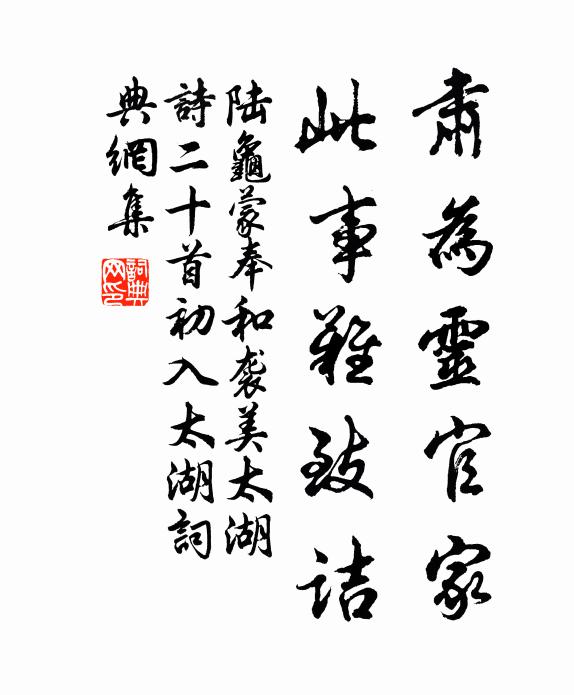 肅為靈官家
此事難致詰
陆龜蒙奉和袭美太湖
詩二十首初入太湖詞
典網集
詞典网印